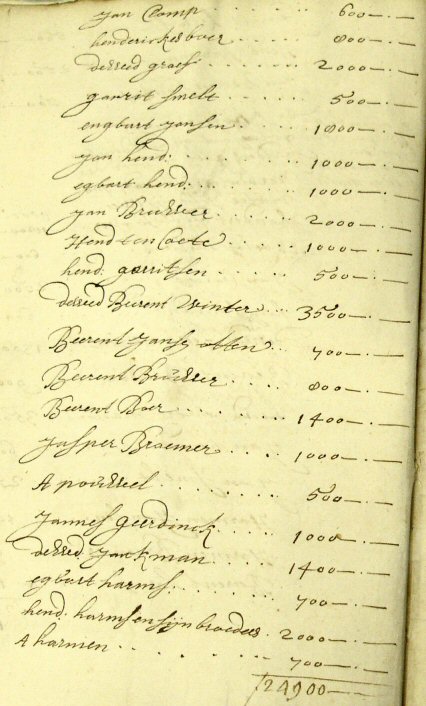 Jan Camp 600—.—
henderickes boer 800—.—
derred groes 2000—.—
garrit smelt 500—.—
engbart Jansen 1800—.—
Jan hend: 1000—.—
egbart hend: 1000—.—
Jan Brukker 2000—.—
Hend ten Caete 1000—.—
hend: garritsen 500—.—
derred Beerent Winter 3500—.—
Beerent Jansz otten 700—.—
Beerent Brükker 800—.—
Beerent Boer 1400—.—
Jasper Braemer 1000—.—
A 500—.—
Jannes geerdinck 1000—.—
derred Jackman 1400—.—
egbart harms 700—.—
hend: harms en sijn broeder 2000—.—
A harmen 700—.—
24900—.—